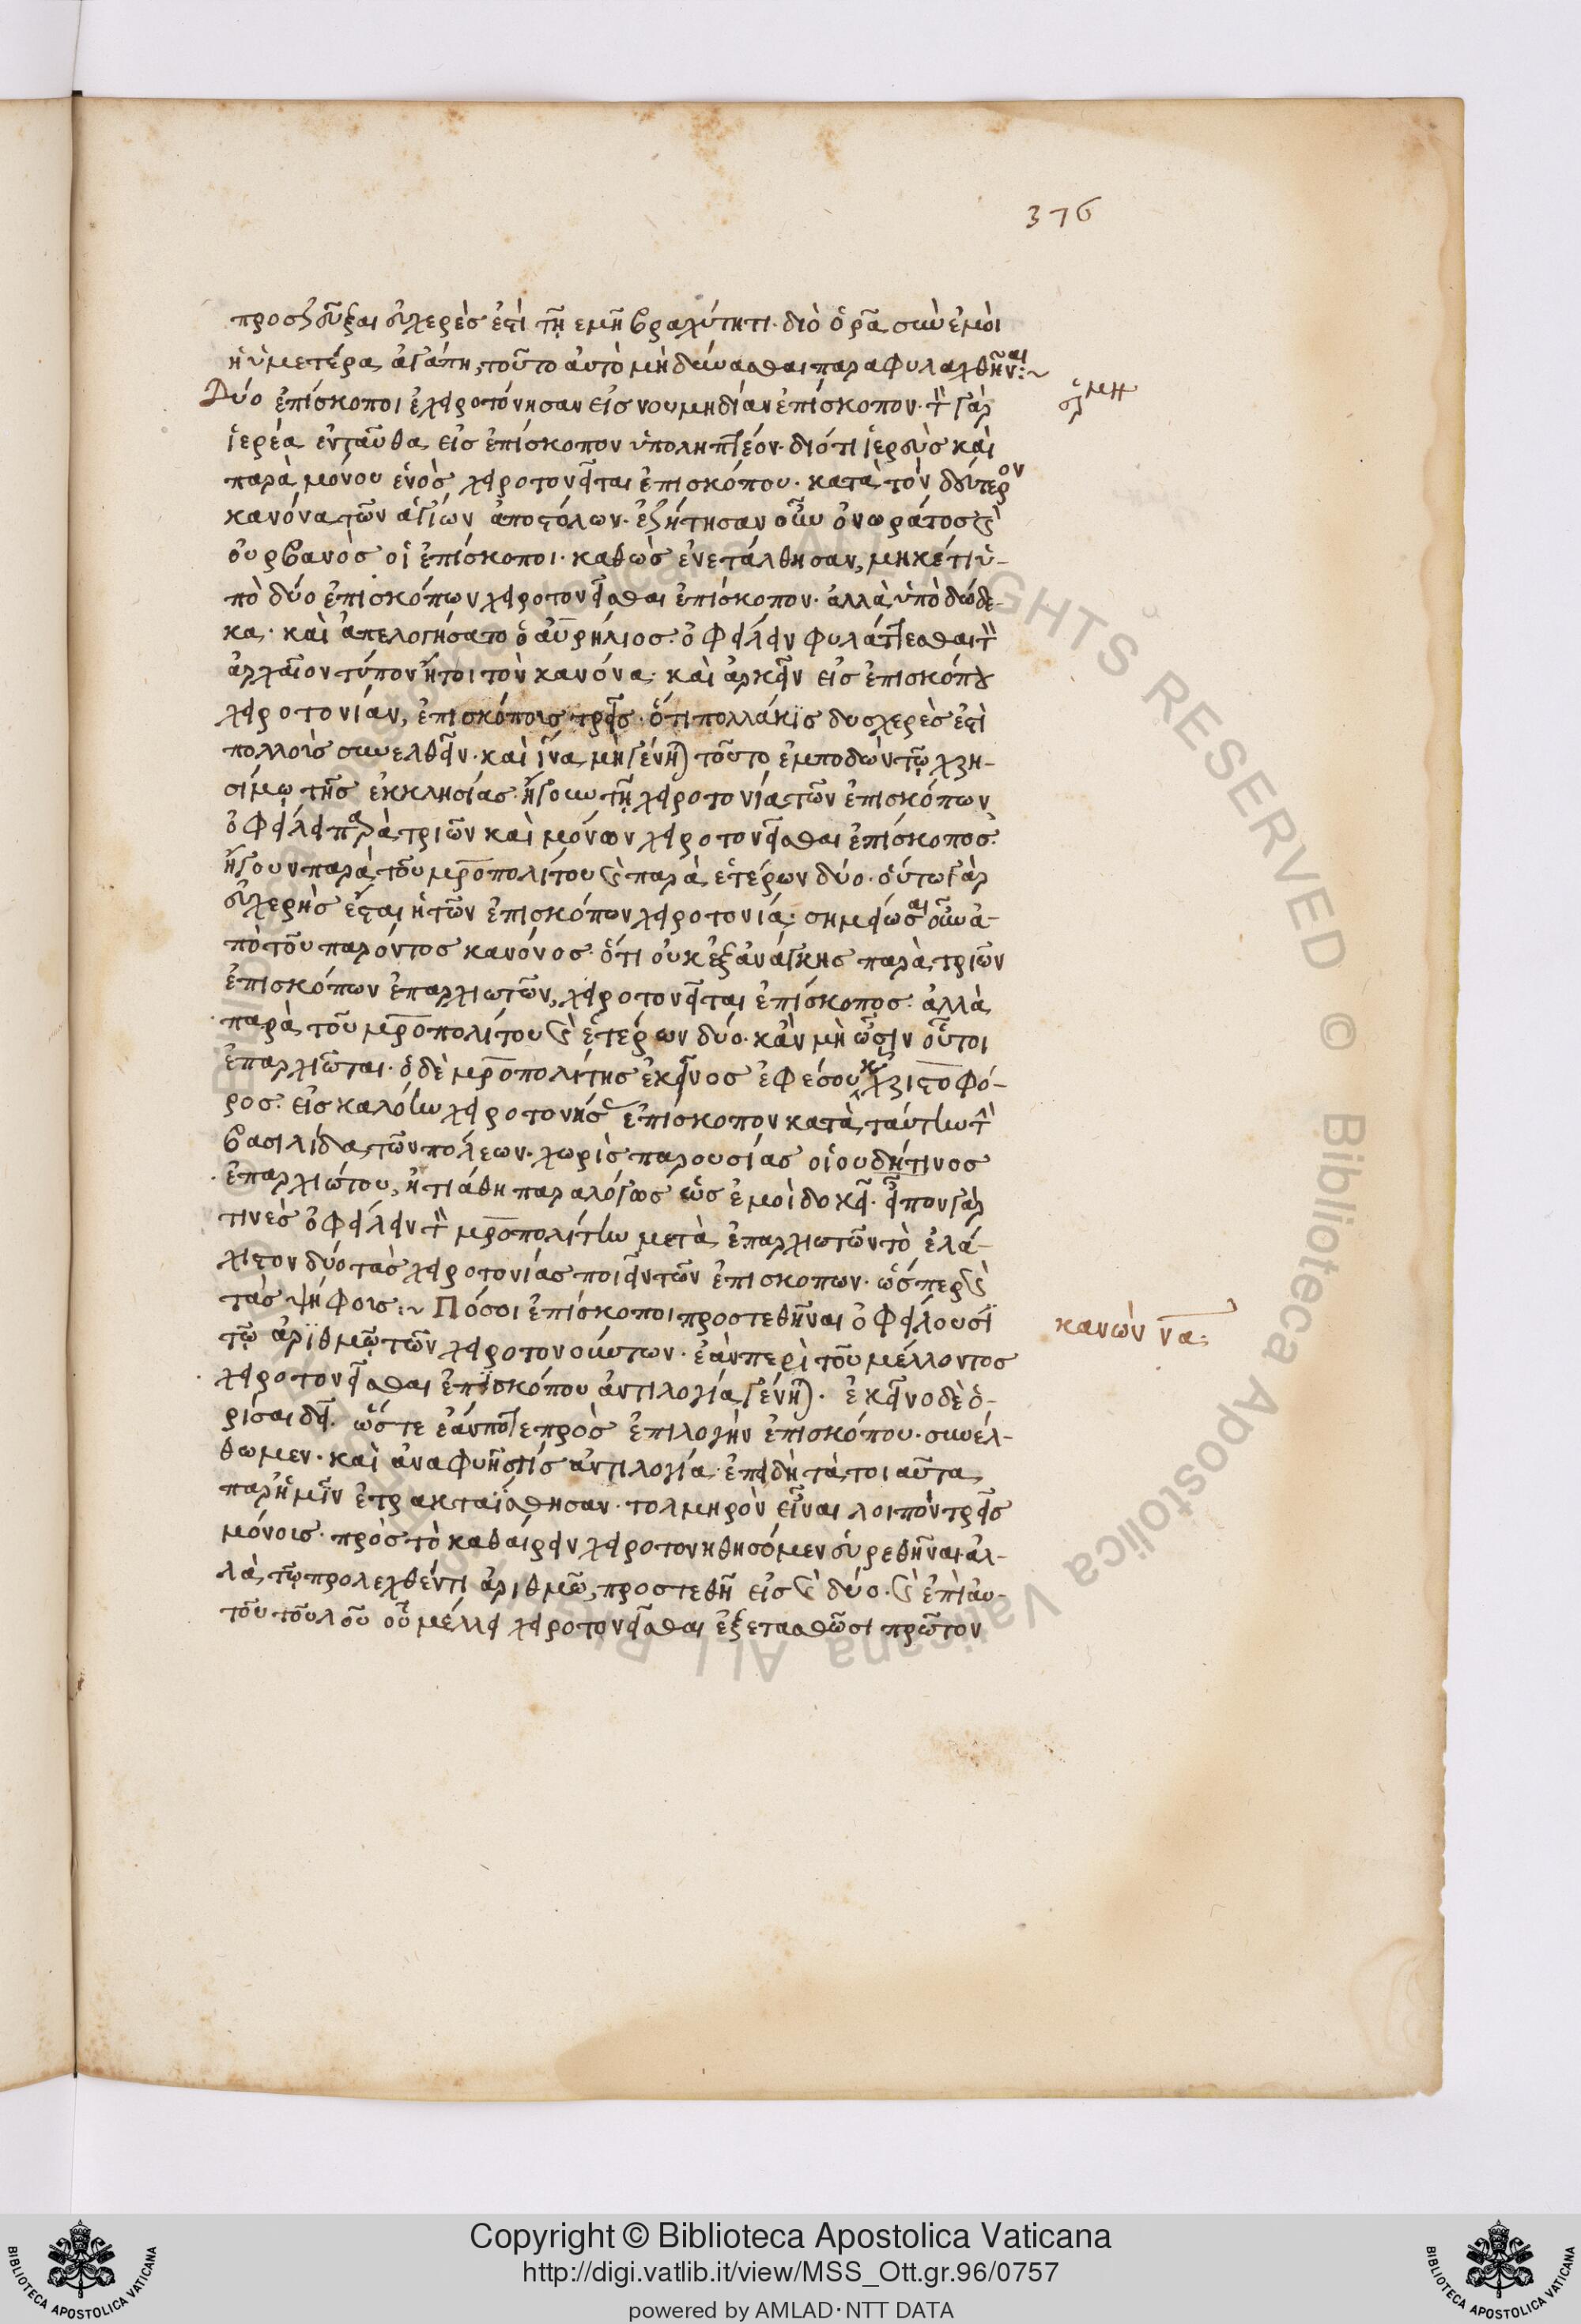 376
προσζεῦξαι εὐχερὲς ἐστὶ τῆ εμῆ βραχύτητι· διὸ ὁρᾶ σὺν ἐμοὶ
ἡ ὑμετέρα ἀγάπη, τοῦτο ἀυτὸ μὴ δύνασθαι παραφυλαχθῆναι:~
Δύο ἐπίσκοποι ἐχειροτόνησαν εἰς νουμηδίαν ἐπίσκοπον· τὸν γὰρ
ἱερέα ἐνταῦθα εἰς ἐπίσκοπον ὑποληπτέον· διότι ἱερεὺς καὶ
παρὰ μόνου ἑνὸς χειροτονεῖται ἐπισκόπου· κατὰ τὸν δεύτερον
κανόνα τῶν ἁγίων ἀποστόλων· ἐζήτησαν οὖν ὀνωράτος καὶ
ουρβανὸς οἱ ἐπίσκοποι· καθὼς ἐνετάλθησαν, μηκέτι ὑ-
πὸ δύο ἐπισκόπων χειροτονεῖσθαι ἐπίσκοπον· ἀλλὰ ὑπὸ δώδε-
κα· καὶ ἀπελογήσατο ὁ αὐρήλιος· ὀφείλειν φυλάττεσθαι τὸν
ἀρχαῖον τύπον ἤτοι τὸν κανόνα· καὶ ἀρκεῖν εἰς ἐπισκόπου
χειροτονίαν, ἐπισκόποις τρεῖς· ὅτι πολλάκις δυσχερὲς ἐστὶ
πολλοὶς συνελθεῖν· καὶ ἵνα μὴ γένηται τοῦτο ἐμποδὼν τῷ χρη-
σίμῳ τῆς ἐκκλησίας· ἤγουν τῇ χειροτονία τῶν ἐπισκόπων
ὀφείλει παρὰ τριῶν καὶ μόνων χειροτονεῖσθαι ἐπίσκοπος·
ἤγουν παρὰ τοῦ μητροπολίτου καὶ παρὰ ἑτέρων δύο· ὁύτω γὰρ
εὐχερὴς ἔσται ἡ τῶν ἐπισκόπων χειροτονία· σημείωσαι οὖν ἀ-
πὸ τοῦ παρόντος κανόνος· ὅτι οὐκ ἐξ ἀνάγκης παρὰ τριῶν
ἐπισκόπων ἐπαρχιωτῶν, χειροτονεῖται ἐπίσκοπος· ἀλλὰ
παρὰ τοῦ μητροπολίτου καὶ ἑτέρων δύο· κἂν μὴ ὦσιν οὗτοι
ἐπαρχιῶται· ὁ δὲ μητροπολίτης ἐκεῖνος ἐφέσου χριστοφό-
ρος· εἰς καλόην χειροτονήσας ἐπίσκοπον κατὰ ταύτην τὴν
βασιλίδα τῶν πόλεων· χωρὶς παρουσίας οἱουδήτινος
ἐπαρχιώτου, ἠτιάθη παραλόγως ὡς ἐμοὶ δοκεῖ· εἶπον γάρ
τινες ὀφείλειν τὸν μητροπολίτην μετὰ ἐπαρχιωτῶν τὸ ἐλά-
χιστον δύο τὰς χειροτονίας ποιεῖν τῶν ἐπισκοπων· ὥσπερ καὶ
τὰς ψήφους:~ Πόσοι ἐπίσκοποι προστεθῆναι ὀφείλουσϊ
τῷ ἀρϊθμῷ τῶν χειροτονούντων· ἐὰν περὶ τοῦ μέλλοντος
χειροτονεῖσθαι ἐπϊσκόπου ἀντιλογία γένηται· ἐκεῖνο δὲ ὁ-
ρίσαι δεῖ· ὥστε ἐάν ποτε πρὸς ἐπιλογὴν ἐπισκόπου· συνέλ-
θωμεν· καὶ ἀναφυῆ τίς ἀντιλογία· ἐπειδὴ τὰ τοιαῦτα
παρ ἡμῖν ἐτρακταΐσθησαν· τολμηρὸν εἶναι λοιπὸν τρεῖς
μόνοις· πρὸς τὸ καθαίρειν χειροτονηθησόμεν εὑρεθῆναι· ἀλ-
λὰ τῷ προλεχθέντι ἀριθμῷ, προστεθῆ εἷς καὶ δύο· καὶ ἐπὶ ἀυ-
τοῦ τοῦ λαοῦ οὗ μέλλει χειροτονεῖσθαι ἐξετασθῶσι πρῶτον
κανὼν να: